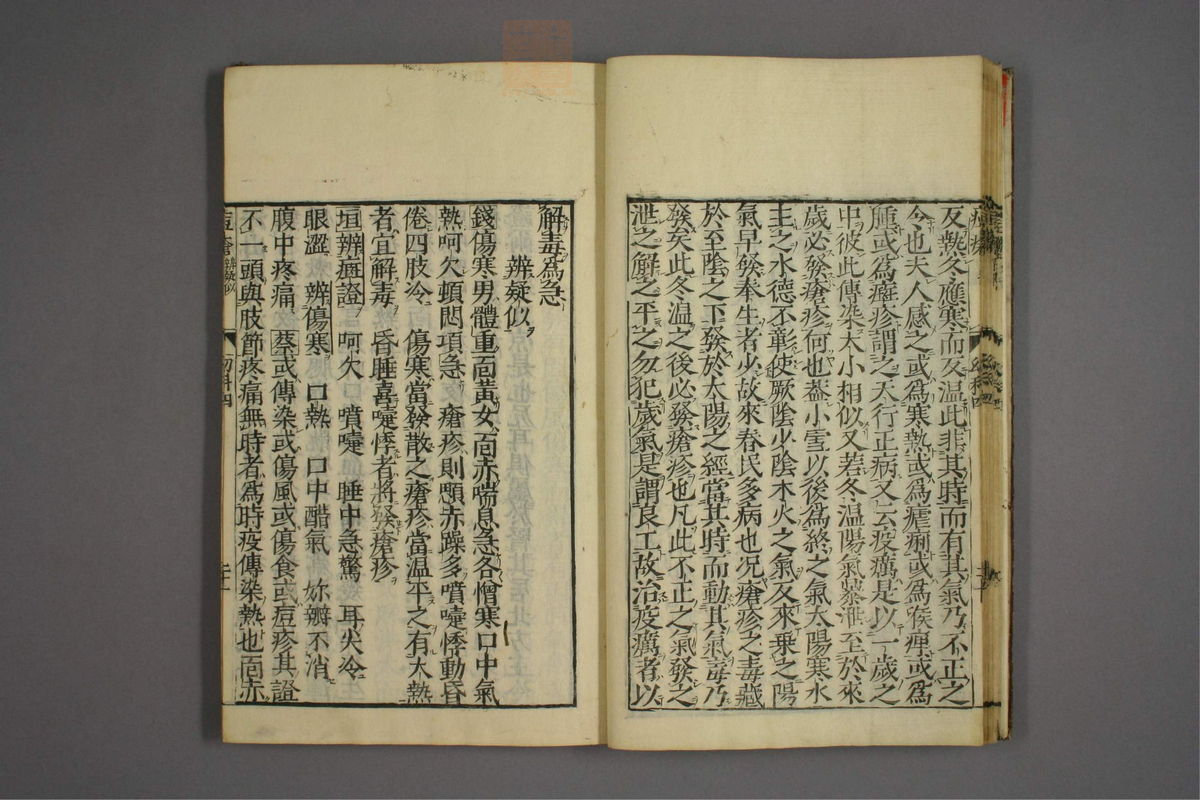 反熱冬應寒而反温此非其時而有其氣乃不正之
令也夫人感之或爲寒熱或爲瘧痢或爲喉痺或爲
腫或爲癍疹謂之天行正病又云疫癘是以一歲之
中彼此傳染大小相似又若冬温陽氣暴泄至於來
歲必發瘡疹何也葢小雪以後爲終之氣太陽寒水
主之水德不彰使厥陰少陰木火之氣反來乗之陽
氣早發奉生者少故來春民多病也况瘡疹之毒藏
於至陰之下發於太陽之經當其時而動其氣毒乃
發矣此冬温之後必發瘡疹也凡此不正之氣發之
泄之解之平之勿犯歲氣是謂良工故治疫癘者以
解毒爲急
辨疑似
錢傷寒男體重面黃女面赤喘息急各憎寒口中氣
熱呵欠頓悶項急 瘡疹則顋赤躁多噴嚏悸動昏
倦四肢冷 傷寒當發散之瘡疹當温平之有大熱
者宜解毒 昏睡喜嚏悸者將發瘡疹
垣辨癍證 呵欠 噴嚏 睡中急驚 耳尖冷
眼澀 辨傷寒 口熱 口中醋氣 妳瓣不消
腹中疼痛 蔡或傳染或傷風或傷食或痘疹其證
不一頭與肢節疼痛無時者爲時疫傳染熱也面赤
痘瘡 辨疑似 幼科四